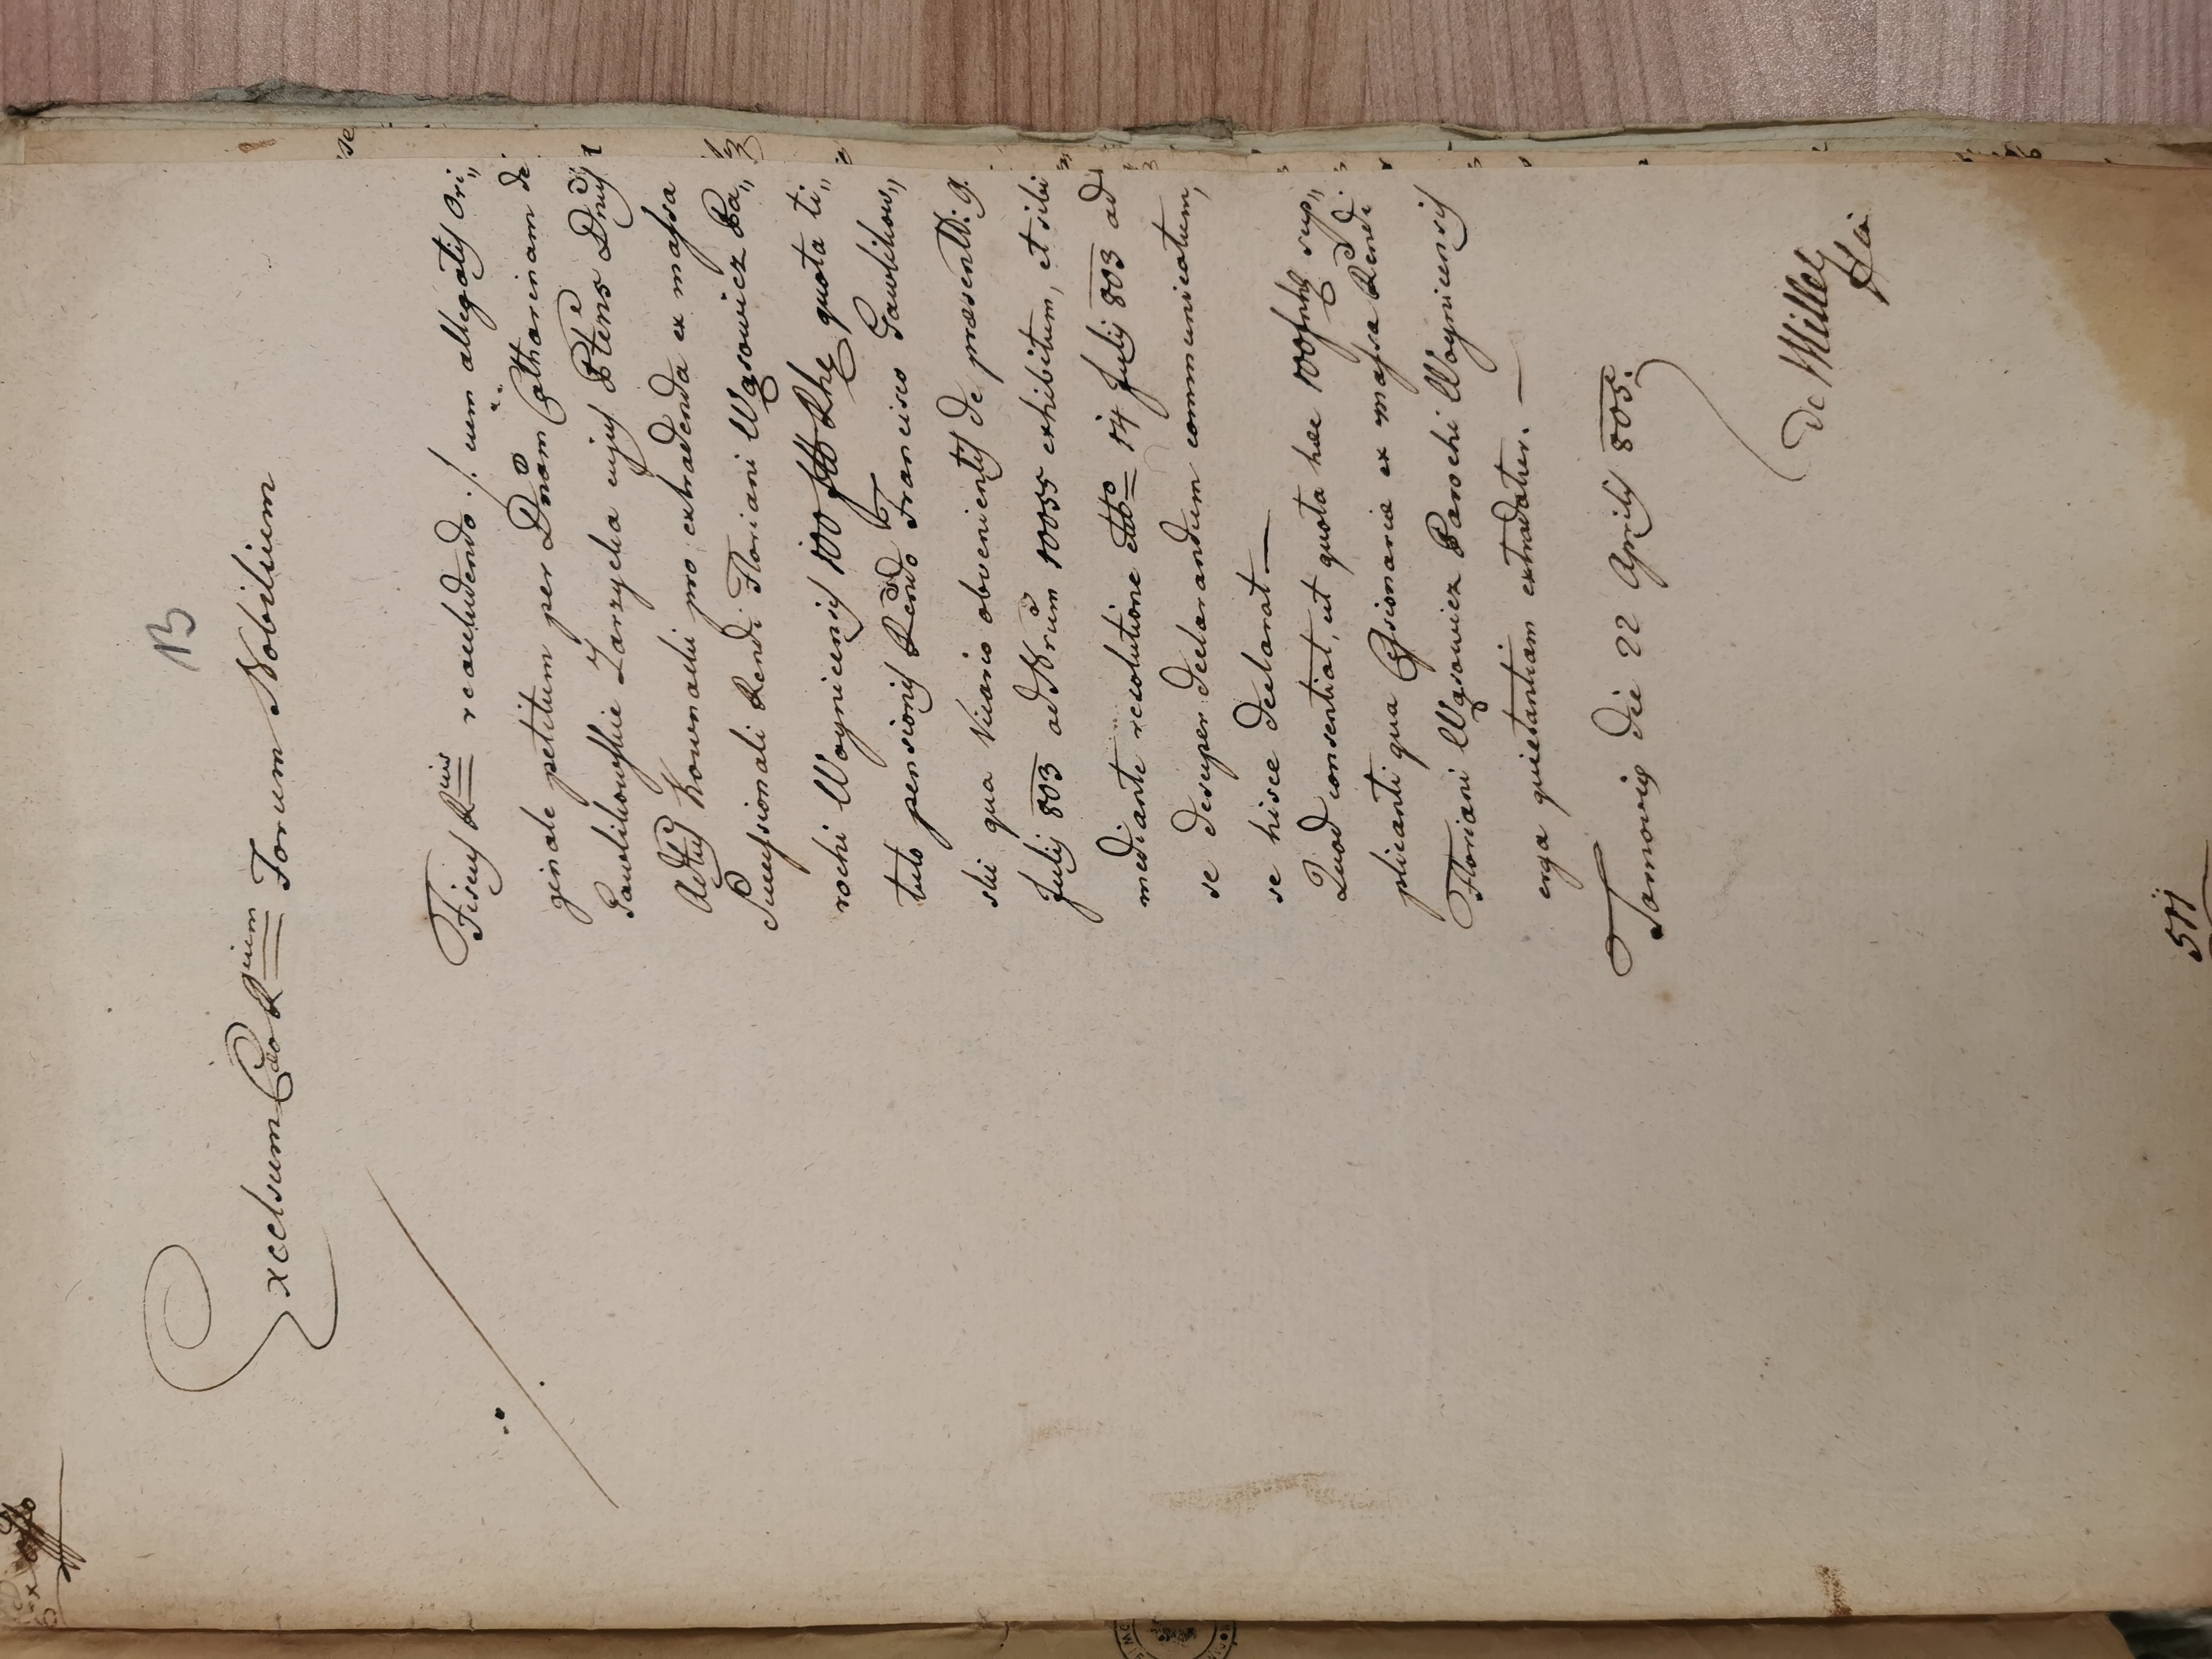 B
Excelsum Cæo Rgium Forum Nobilium
Fiscus Rius recludendo ./. cum allegatis ori„
ginale petitum per Dnam Catharinam de
Gawlikowskie Zarzycka cujus Ptens Dnus
Adtus Kownacki pro extradenda ex massa
Successionali Rendi Floriani Wąsowicz Pa„
rochi Woynicensis 100 Rhe quota ti„
tulo pensionis Rendo Francisco Gawlikow„
ski qua Vicario obvenientis de præsentti: 9.
Julij 803 ad Nrum 10055 exhibitum, et sibi
mediante resolutione ddto 14 Julij 803 ad
se desuper declarandum communicatum,
se hisce declarat —
Quod consentiat, ut quota hæc 100 sup„
plicanti qua Cessionariæ ex massa Rendi
Floriani Wąsowicz Parochi Woynicensis
erga quietantiam extradatur. —
Tarnoviæ die 22 Aprilis 805.
De Miller
511